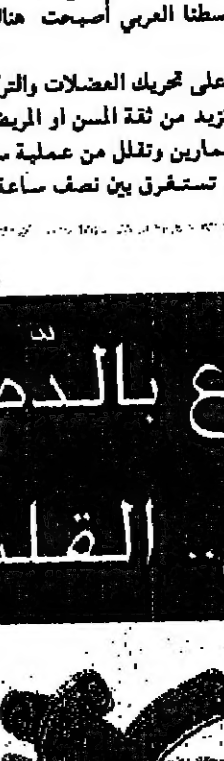 سطنا العربي أصبحت هنال
على تحريك العضلات والتر
زيد من ثقة المسن او المريض
مارين وتقلل من عملية س
تستغرق بين نصف ساعة
ع بالدّم
.. القلب